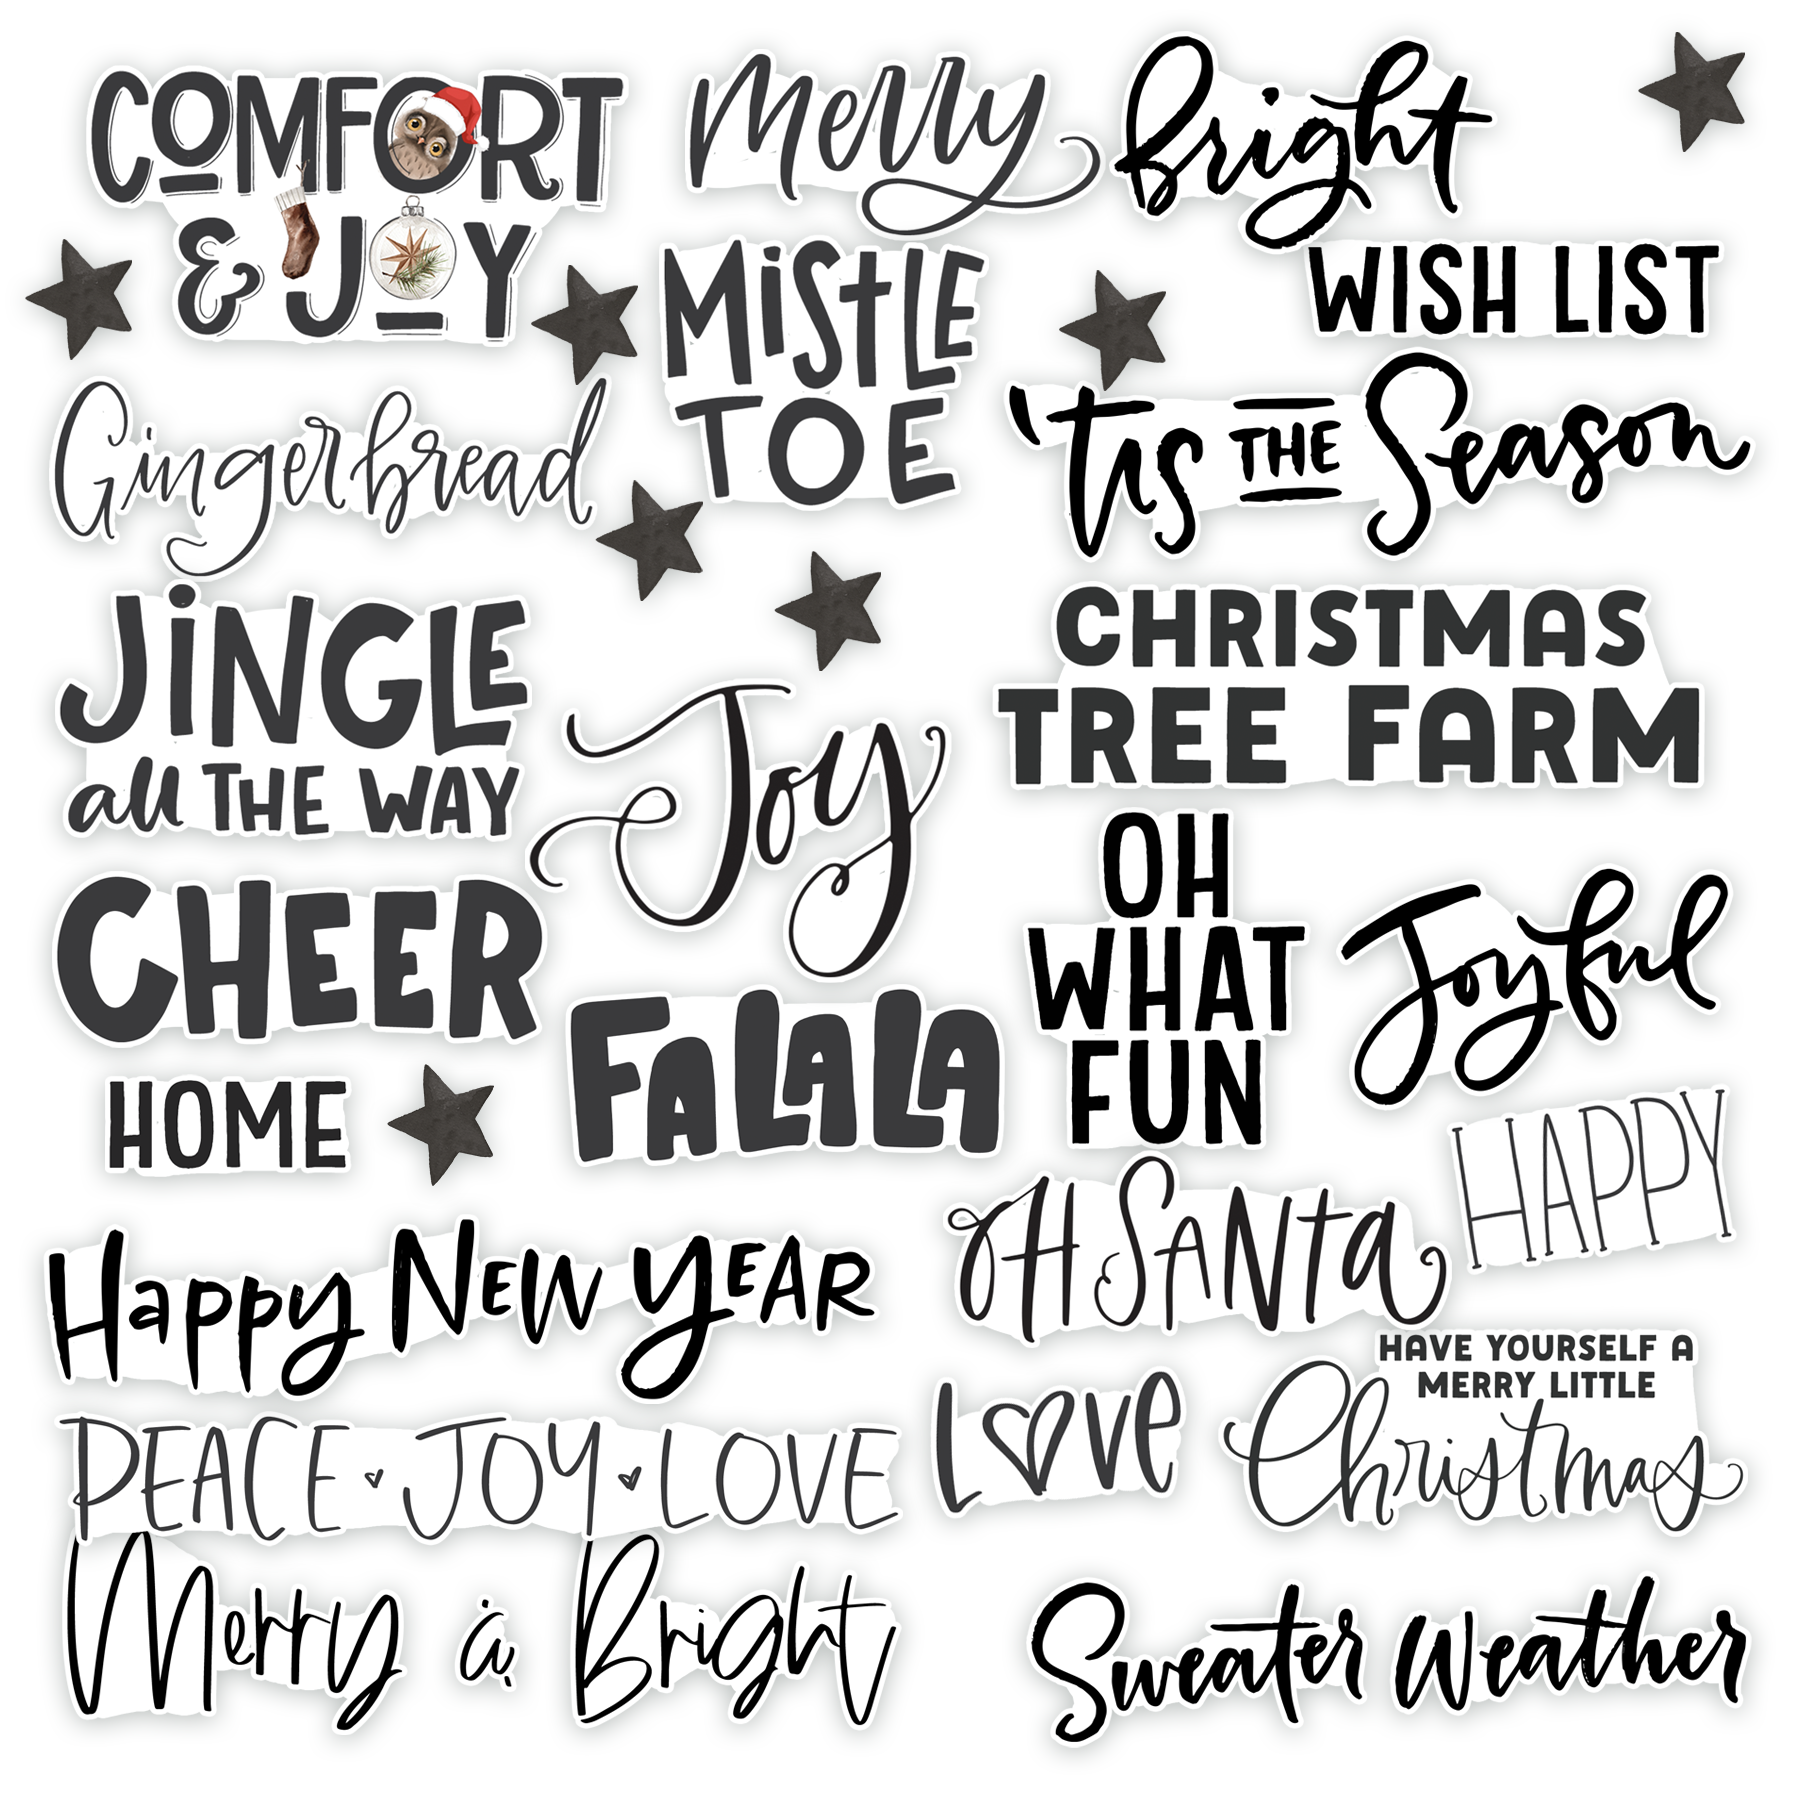 COMFORT
& JOY
merry
bright
WISH LIST
MiSTLE
TOE
Gingerbread
'tis THE Season
JiNGLE
all THE WAY
CHRISTMAS
TREE FARM
Joy
OH
WHAT
FUN
Joyful
CHEER
FALALA
HOME
HAPPY
OH SANta
Happy NEW YEAR
HAVE YOURSELF A
MERRY LITTLE
Christmas
Love
PEACE JOY LOVE
Merry & Bright
Sweater Weather